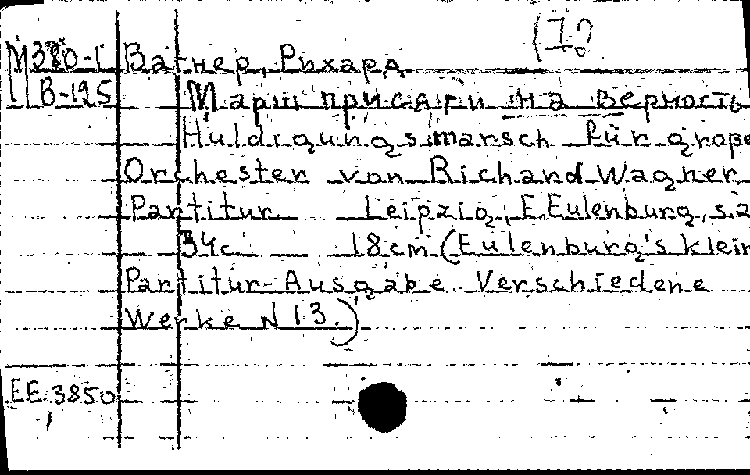 (I?
М380-I Вагнер, Рихард
В-125 Марш присяги на верность
Huldigungsmarsch für grope
Orchester von Richard Wagner
Partitur Leipzig, E.Eulenburg, s.a
34c 18cm (Eulenburg's klein
Partitur-Ausgabe Verschiedene
Werke N 13.)
EE 3850